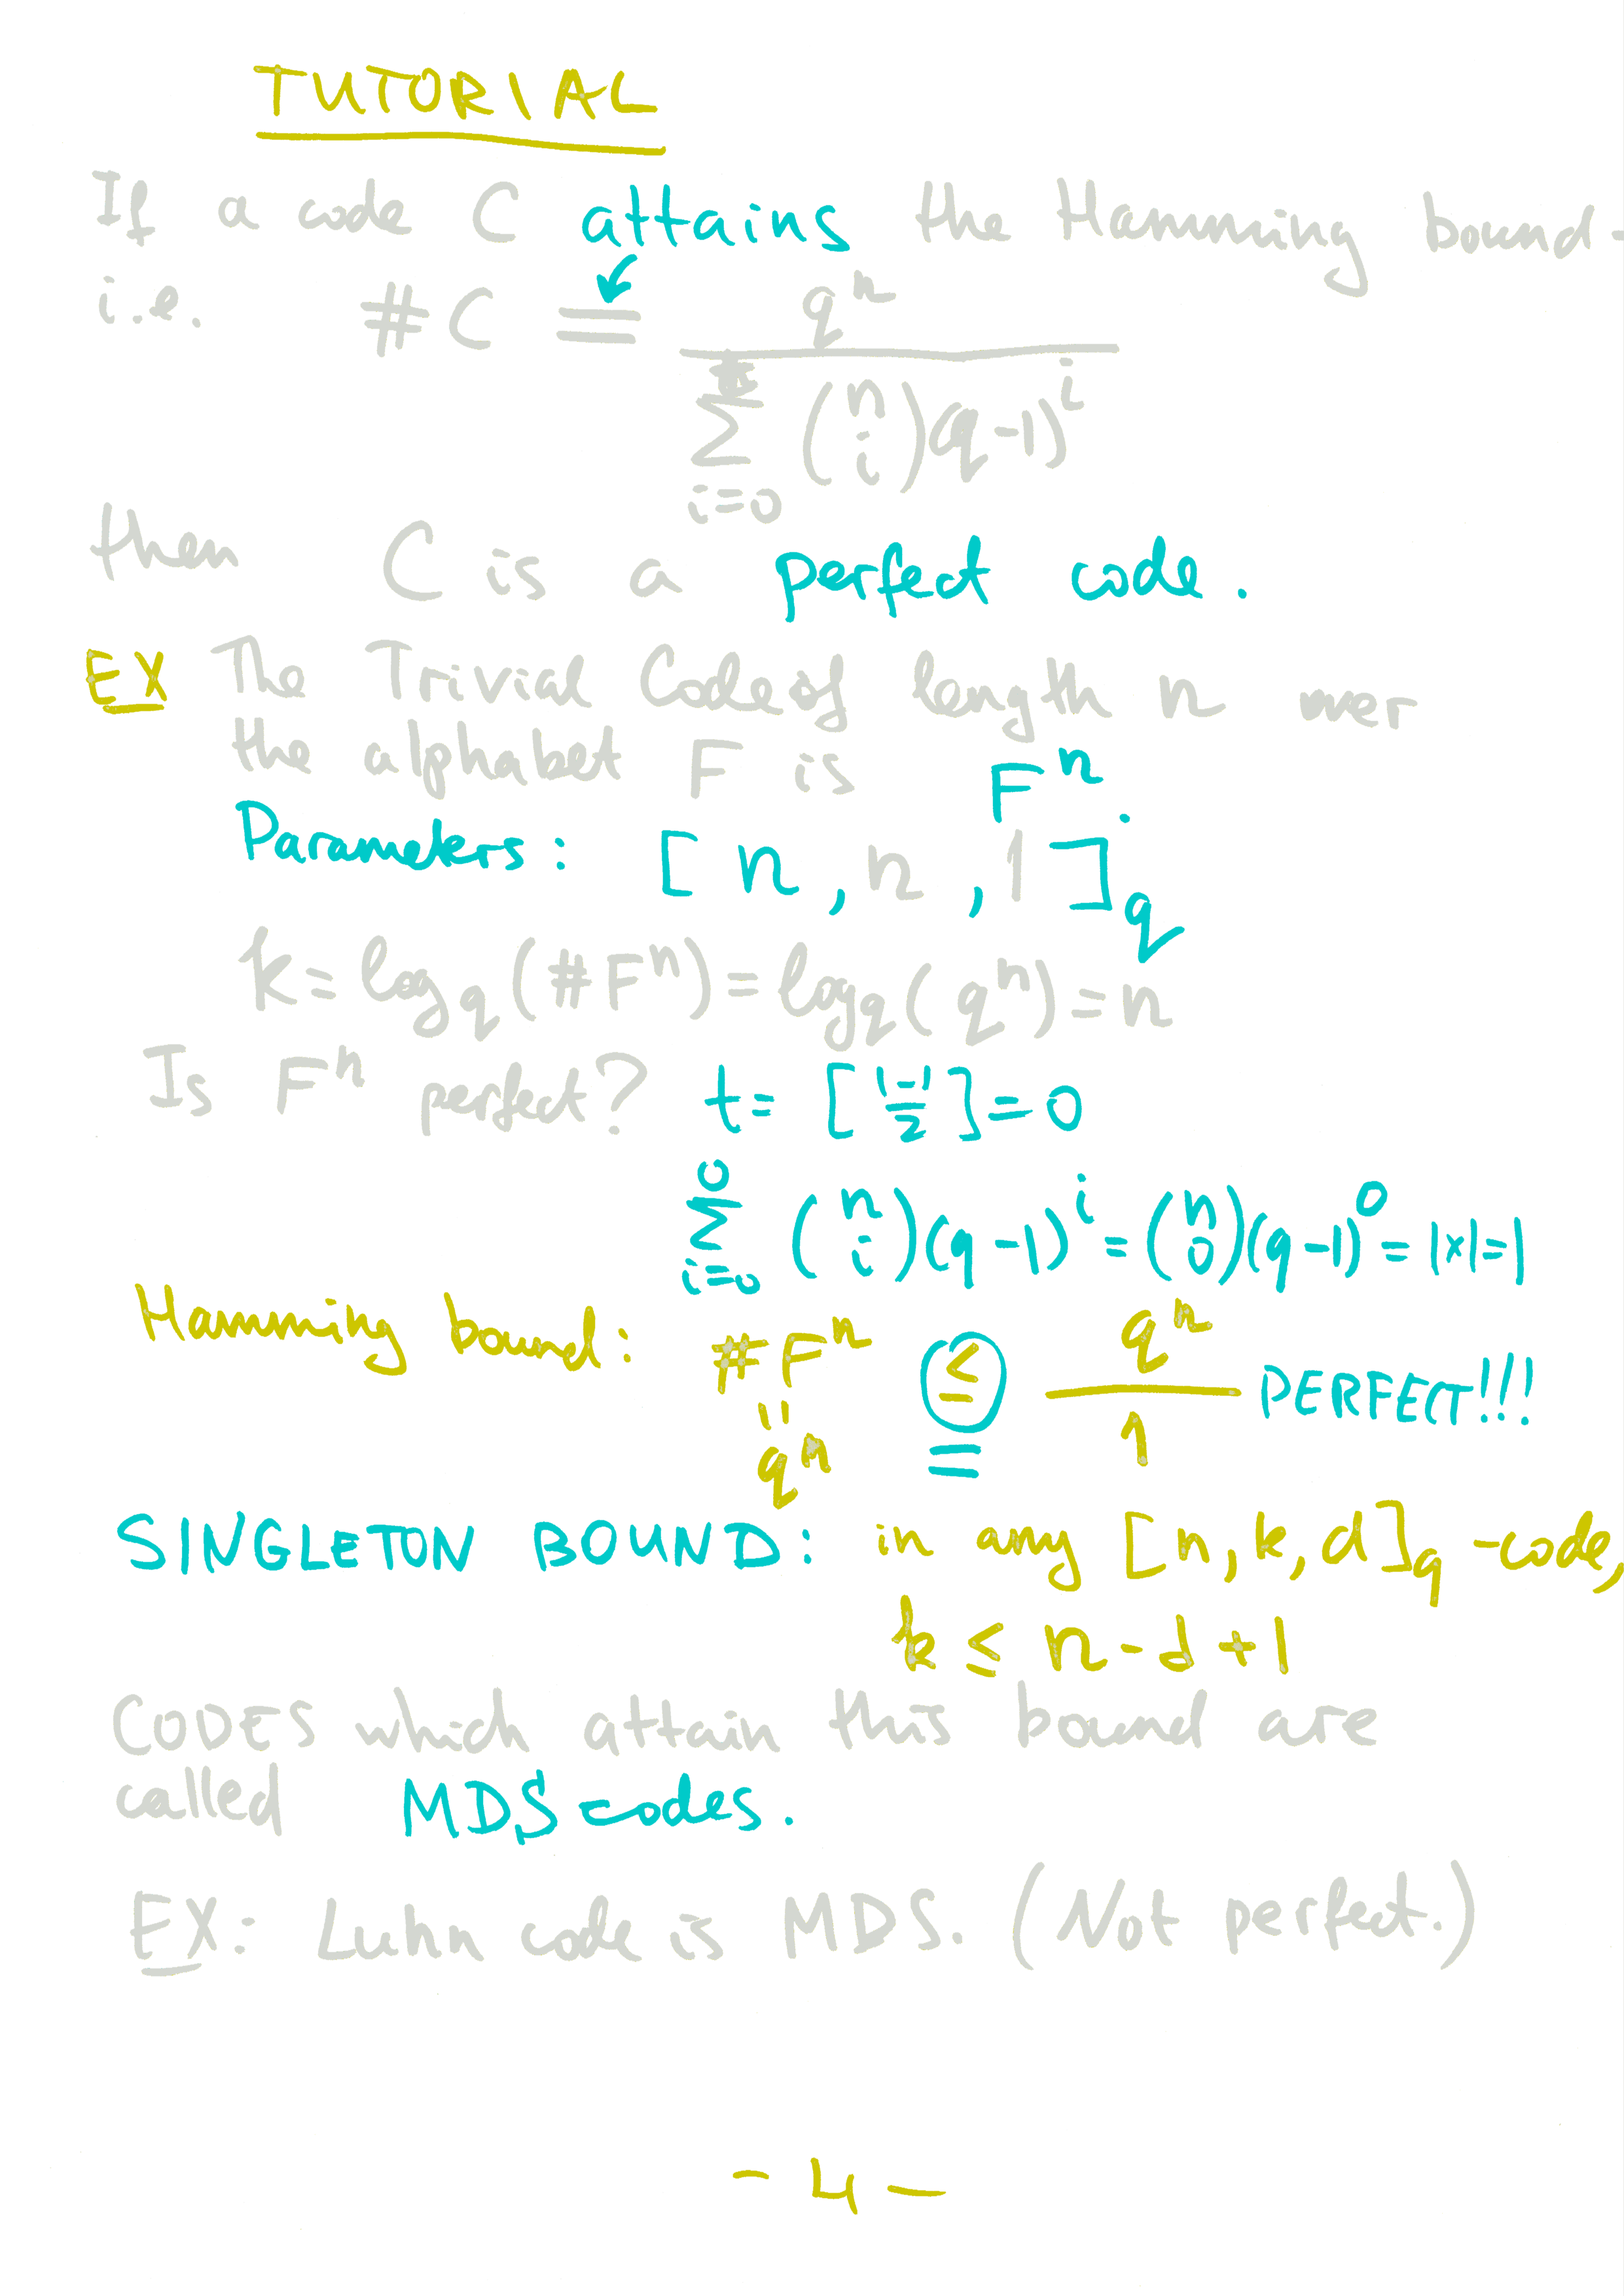 TUTORIAL
If a code C attains the Hamming bound -
i.e. #C = q^n / ∑_{i=0}^{t} (n i)(q-1)^i
then C is a perfect code.
EX The Trivial Code of length n over
the alphabet F is F^n.
Parameters: [n, n, 1]_q
k = log_q(#F^n) = log_q(q^n) = n
Is F^n perfect? t = [(1-1)/2] = 0
∑_{i=0}^{0} (n i)(q-1)^i = (n 0)(q-1)^0 = 1×1 = 1
Hamming bound: #F^n ≤ q^n / 1 PERFECT!!!
= =
q^n
SINGLETON BOUND: in any [n, k, d]_q-code,
k ≤ n - d + 1
CODES which attain this bound are
called MDS codes.
EX: Luhn code is MDS. (Not perfect.)
- 4 -